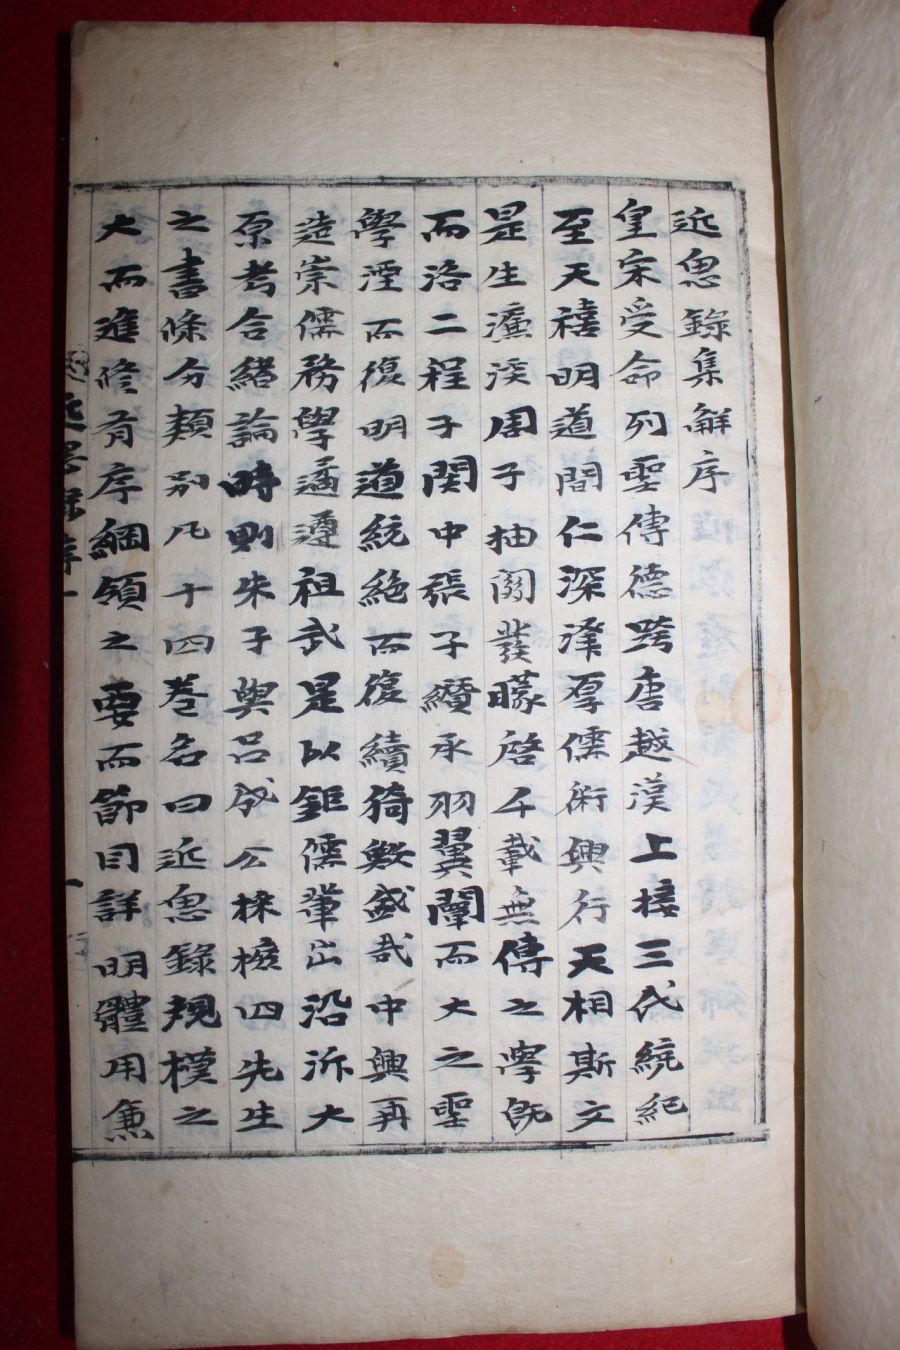 近思錄集解序
皇宋受命列聖傳德跨唐越漢上接三代統紀
至天禧明道間仁深澤厚儒術興行天相斯文
是生濂溪周子抽關發矇啓千載無傳之學旣
而洛二程子関中張子纘承羽翼闡而大之聖
學湮而復明道統絶而復續猗歟盛哉中興再
造崇儒務學遹遵祖武是以鉅儒輩出沿泝大
原考合緖論時則朱子與呂成公採摭四先生
之書條分類別凡十四巻名曰近思錄規模之
大而進修有序綱領之要而節目詳明體用兼
近思錄序
一